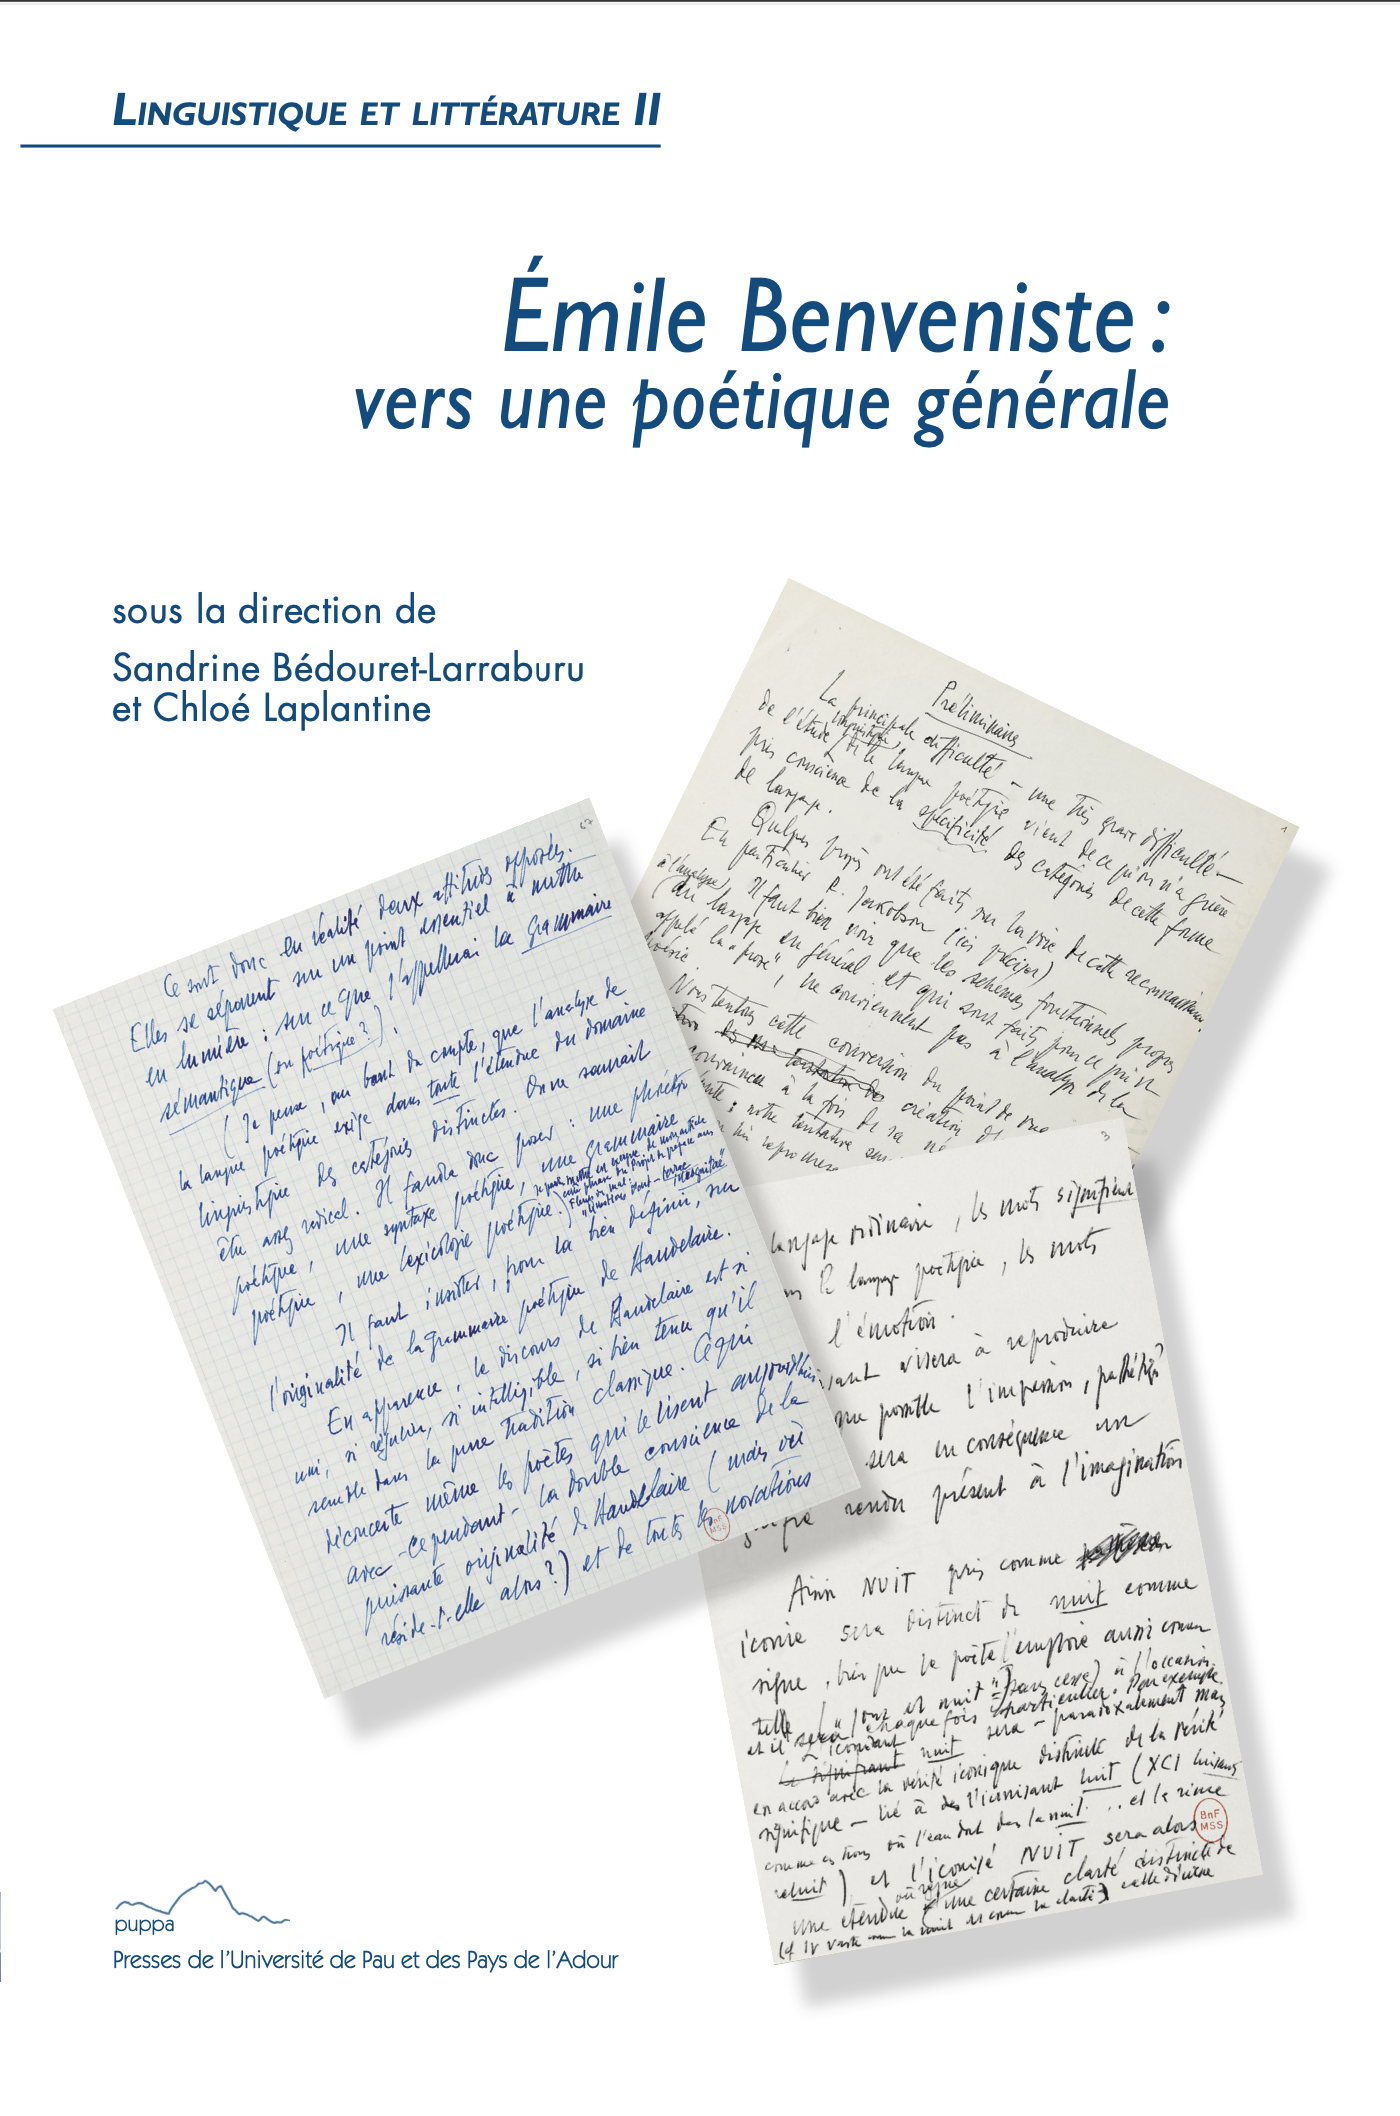 LINGUISTIQUE ET LITTÉRATURE II
Émile Benveniste :
vers une poétique générale
sous la direction de
Sandrine Bédouret-Larraburu
et Chloé Laplantine
Préliminaire
La principale difficulté – une très grave difficulté –
de l'étude linguistique de la langue poétique vient de ce qu'on n'a guère
pris conscience de la spécificité des catégories de cette forme
de langage.
Quelques ont été faits sur la voie de cette reconnaissance.
En particulier R. Jakobson
Il faut bien voir que les schèmes fonctionnels propres
à l'analyse du langage en général et qui sont faits pour ce qui est
appelé la "prose", ne conviennent pas à l'analyse de la
poésie.
Nous tentons cette conversion du point de vue
Ce sont donc en réalité deux attitudes opposées.
Elles se séparent sur un point essentiel à mettre
en lumière : sur ce que j'appellerai la grammaire
sémantique (ou poétique ?).
(Je pense, au bout du compte, que l'analyse de
la langue poétique exige dans toute l'étendue du domaine
linguistique des catégories distinctes. On ne saurait
être assez radical. Il faudra donc poser : une phonétique
poétique, une syntaxe poétique, une grammaire
poétique, une lexicologie poétique.)
Il faut insister, pour la bien définir, sur
l'originalité de la grammaire poétique de Baudelaire.
En apparence, le discours de Baudelaire est si
uni, si régulier, si intelligible, si bien tenu qu'il
semble dans la pure tradition classique. Ce qui
déconcerte même les poètes qui le lisent aujourd'hui
avec – cependant – la double conscience de la
puissante originalité de Baudelaire (mais où
réside-t-elle alors ?) et de toutes les novations
langage ordinaire, les mots signifient
le langage poétique, les mots
l'émotion.
visera à reproduire
possible l'impression, pathétique
sera en conséquence un
rendu présent à l'imagination
Ainsi NUIT pris comme
icone sera distinct de nuit comme
signe, bien que le poète l'emploie aussi comme
"Jour et nuit" (sans cesse) à l'occasion.
chaque fois particulier. Par exemple
nuit sera – paradoxalement mais
en accord avec la vérité iconique distincte de la vérité
signifique – lié à l'iconisant luit (XCI luisants
comme ces trous où l'eau dort dans la nuit ... et la rime
reluit), et l'iconisé NUIT sera alors
une étendue où règne une certaine clarté distincte de
BnF
MSS
BnF
MSS
puppa
Presses de l'Université de Pau et des Pays de l'Adour